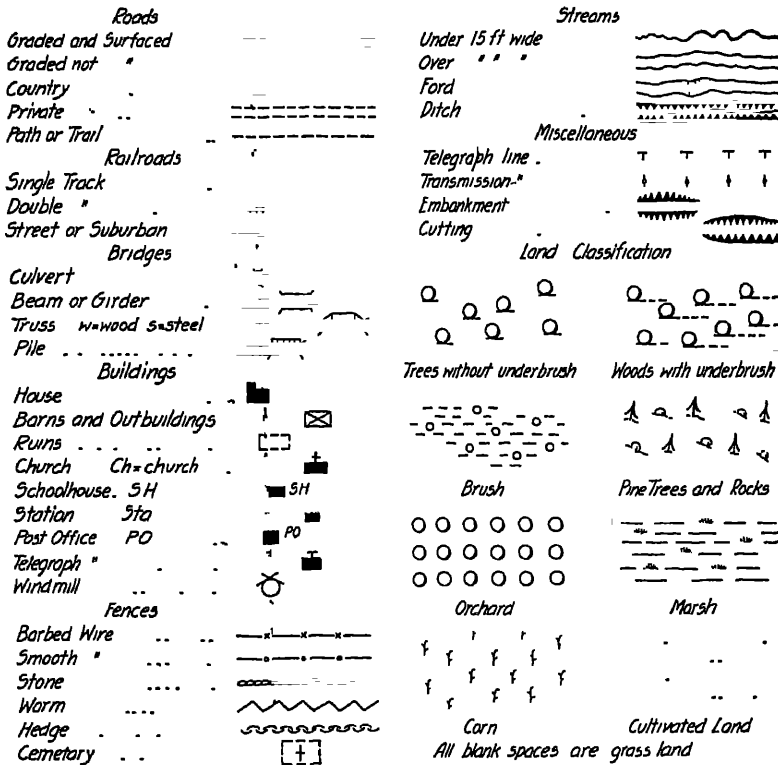 Roads
Graded and Surfaced
Graded not "
Country
Private
Path or Trail
Railroads
Single Track
Double "
Street or Suburban
Bridges
Culvert
Beam or Girder
Truss w=wood s=steel
Pile
Buildings
House
Barns and Outbuildings
Ruins
Church Ch=church
Schoolhouse. SH
SH
Station Sta
Post Office PO
PO
Telegraph "
Windmill
Fences
Barbed Wire
Smooth "
Stone
Worm
Hedge
Cemetary
Streams
Under 15 ft wide
Over " " "
Ford
Ditch
Miscellaneous
Telegraph line
Transmission "
Embankment
Cutting
Land Classification
Trees without underbrush
Woods with underbrush
Brush
Pine Trees and Rocks
Orchard
Marsh
Corn
Cultivated Land
All blank spaces are grass land